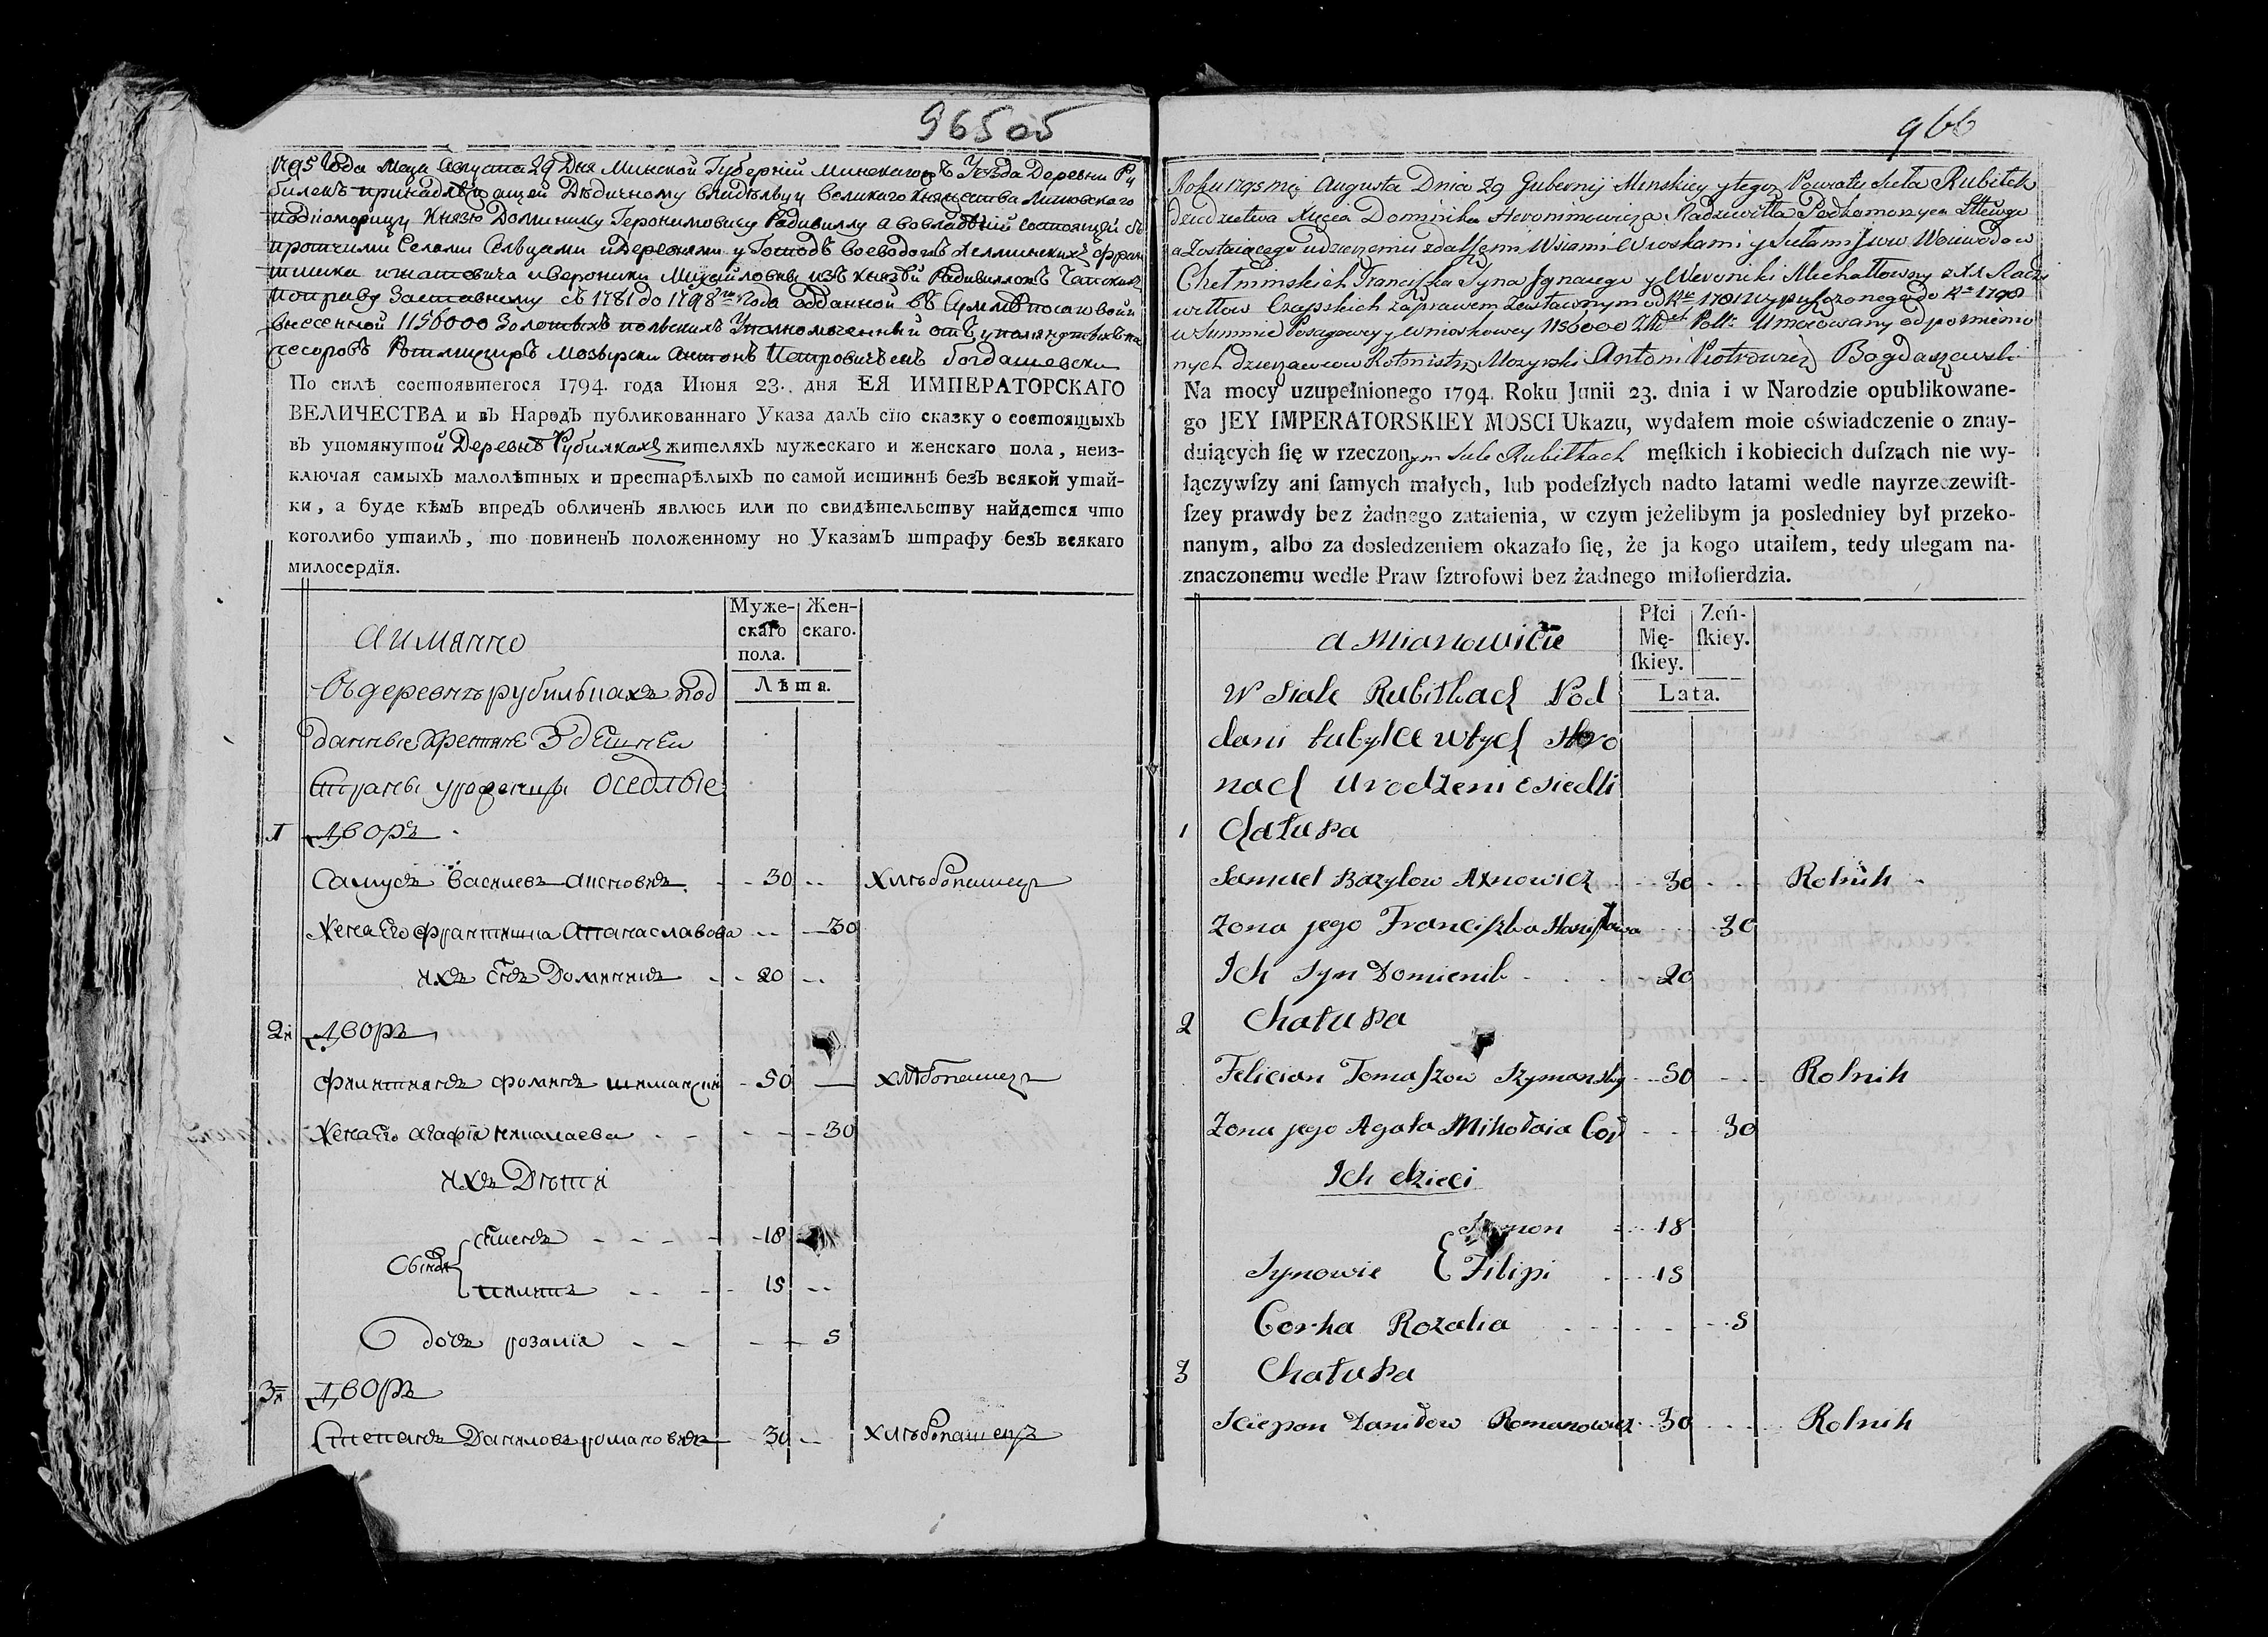 96505
1795 Года Маца Августа 29 Дня Минской Губерніи Минскагожъ Уезда Деревни Ру
билокъ принадлежащей Дѣдичному владѣльцу великаго Княжества Литовскаго
подкоморицу Князю Доминику Геронимовичу Радивиллу а вовладѣніи состоящей съ
протчими Селами Сельцами идеревнями у Господъ воеводовъ хелминскихъ Фран
цишка игнатовича иВероники Михайловны изъ Князей Радивилловъ Чапскихъ
поправу Заставному съ 1781 до 1798 года отданной въ Суммѣ посаговой и
внесенной 1156000 Золотыхъ польскихъ Уполномоченный отъ
сесоровъ Ротмистръ мозырски Антонъ Петровичъ Богдашевски
По силѣ состоявшегося 1794. года Июня 23. дня ЕЯ ИМПЕРАТОРСКАГО
ВЕЛИЧЕСТВА и въ Народъ публикованнаго Указа далъ сїю сказку о состоящыхъ
въ упомянутой Деревнѣ Рубилкахъ жителяхъ мужескаго и женскаго пола, неиз-
ключая самыхъ малолѣтныхъ и престарѣлыхъ по самой истиннѣ безъ всякой утай-
ки, а буде кѣмъ впредъ обличенъ явлюсь или по свидѣтельству найдется что
коголибо утаилъ, то повиненъ положенному но Указамъ штрафу безъ всякаго
милосердїя.
аимянно
Муже-
скаго
пола.
Жен-
скаго.
Лѣта.
въдеревнѣ рубилкахъ под
данные хрестяне Здешнеи
страны уроженцы оседлые
1 Дворъ
Самусъ васильевъ аксновичъ 30 хлѣбопашецъ
Жена Его францишка Станаславова 30
ихъ Сынъ Доминикъ 20
2й Дворъ
фелициянъ фоминъ шиманский 50 хлѣбопашецъ
Жена Его агафїя николаева 30
ихъ Дѣти
Семенъ 18
Сыновья
Филипъ 15
дочь розалїя 5
3й Дворъ
Степанъ Даниловъ романовичъ 30 хлѣбопашецъ
966
Roku 1795 mca Augusta Dnia 29 Gubernij Minskiey y tegoz Powiatu Sieła Rubiłek
dziedzictwa Xięcia Dominika Heronimowicza Radziwiłła Podkomorzyca Littewgo
a Zostaiącego w dzierzeniu z dalszemi Wsiami Wioskami y Siełami Jww Woiewodow
Chełminskich Franciszka Syna Jgnacego y Weroniki Michałowny z XX Radzi
wiłłow Czapskich za prawem Zastawnym od Rku 1781 Wypuszczonego do Rku 1798
w Summie Posagowey y wnioskowey 1156000 Złł Poll: Umocowany od pomienio
nych dzierzawcow Rotmistrz Mozyrski Antoni Piotrowicz Bogdaszewski
Na mocy uzupełnionego 1794. Roku Junii 23. dnia i w Narodzie opublikowane-
go JEY IMPERATORSKIEY MOSCI Ukazu, wydałem moie oświadczenie o znay-
duiących ſię w rzeczonym Siele Rubiłkach męſkich i kobiecich duſzach nie wy-
łączywſzy ani ſamych małych, lub podeſzłych nadto latami wedle nayrzeczewiſt-
ſzey prawdy bez żadnego zataienia, w czym jeżelibym ja posledniey był przeko-
nanym, albo za dosledzeniem okazało ſię, że ja kogo utaiłem, tedy ulegam na-
znaczonemu wedle Praw ſztrofowi bez żadnego miłoſierdzia.
a Mianowicie
Płci
Mę-
ſkiey.
Zeń-
ſkiey.
Lata.
W Siale Rubiłkach Pod
dani tubylce wtych stro
nach Urodzeni Osiedli
1 Chałupa
Samuel Bazylow Axnowicz 30 Rolnik
Zona jego Franciszka Stanisława 30
Ich Syn Domienik 20
2 Chałupa
Felician Tomaszow Szymansky 50 Rolnik
Zona jego Agata Mikołaia Cor 30
Ich dzieci
Symon 18
Synowie Filipi 15
Corka Rozalia 5
3 Chałupa
Sciepan Daniłow Romanowicz 30 Rolnik